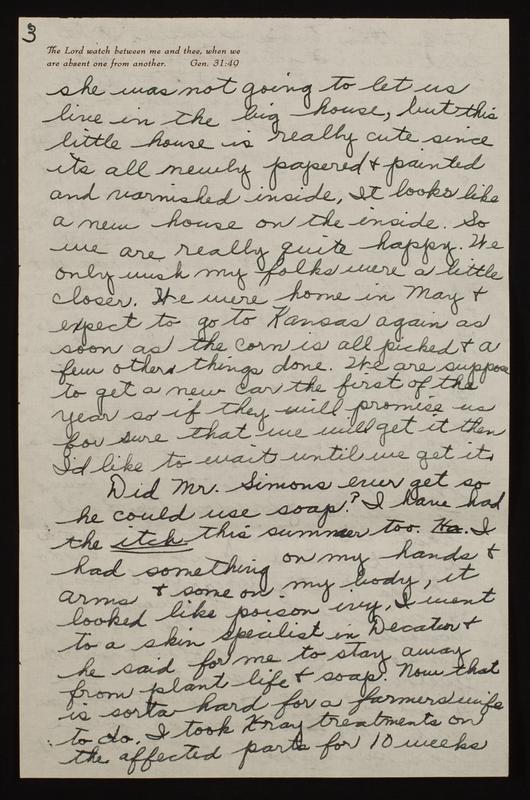 3
The Lord watch between me and thee, when we
are absent one from another. Gen. 31:49
she was not going to let us
live in the big house, but this
little house is really cute since
its all newly papered & painted
and varnished inside, It looks like
a new house on the inside. So
we are really quite happy. We
only wish my folks were a little
closer. We were home in May &
expect to go to Kansas again as
soon as the corn is all picked & a
few others things done. We are suppose
to get a new car the first of the
year so if they will promise us
for sure that we will get it then
I'd like to wait until we get it.
Did Mr. Simons ever get so
he could use soap? I have had
the itch this summer too. Ha. I
had something on my hands &
arms & some on my body, it
looked like poison ivy, I went
to a skin specilist in Decatur &
he said for me to stay away
from plant life & soap. Now that
is sorta hard for a farmers wife
to do. I took Xray treatments on
the affected parts for 10 weeks